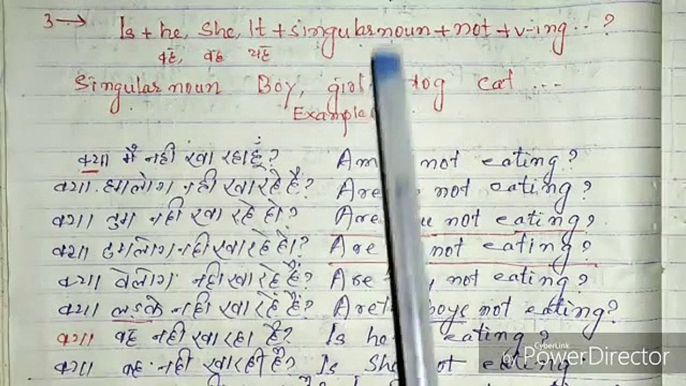 3→ Is + he, she, It + singular noun + not + v-ing..?
वह, वह यह
Singular noun Boy, dog cat ...
Example
क्या मैं नही खा रहा हूँ? Am not eating?
क्या हमलोग नही खा रहे हैं? Are not eating?
क्या तुम नही खा रहे हो? Are not eating?
क्या तुमलोग नही खा रहे हो? Are not eating?
क्या वेलोग नही खा रहे हैं? Are not eating?
क्या लड़के नही खा रहे हैं? Are boys not eating?
क्या वह नही खा रहा है? Is he eating?
क्या वह नही खा रही है? Is She not eating
CyberLink
PowerDirector